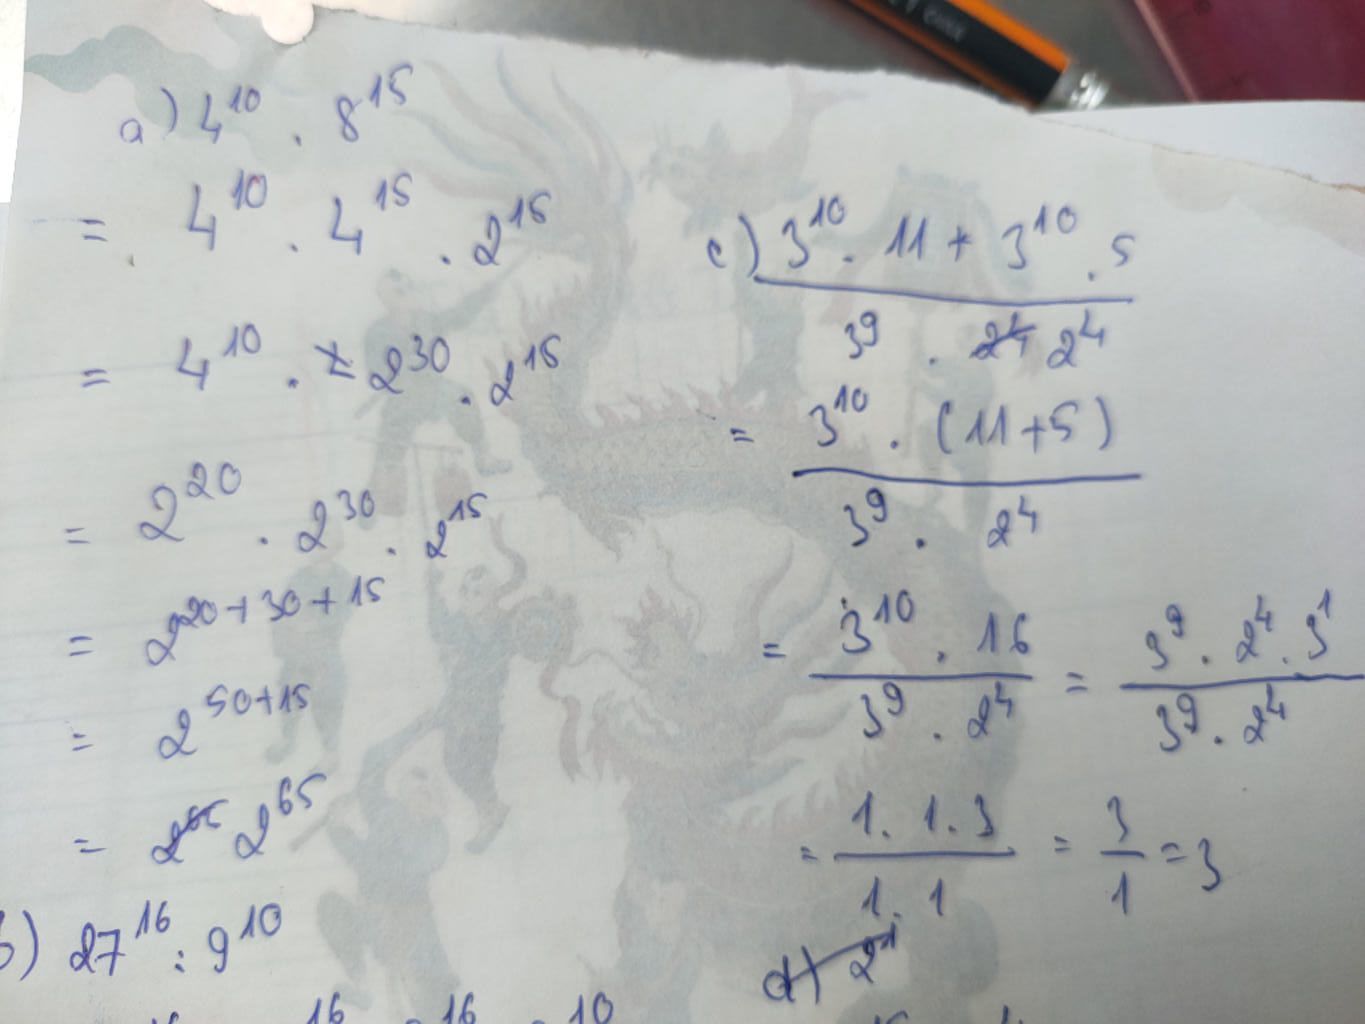 a) 4^10 . 8^15
= 4^10 . 4^15 . 2^15
= 4^10 . 2^30 . 2^15
= 2^20 . 2^30 . 2^15
= 2^20+30+15
= 2^50+15
= 2^65 2^65
b) 27^16 : 9^10
16 16 10
c) 3^10 . 11 + 3^10 . 5
3^9 . 24 2^4
= 3^10 . (11+5)
3^9 . 2^4
= 3^10 . 16 = 3^9 . 2^4 . 3^1
3^9 . 2^4 3^9 . 2^4
= 1 . 1 . 3 = 3 = 3
1 . 1 1
d) 2^1